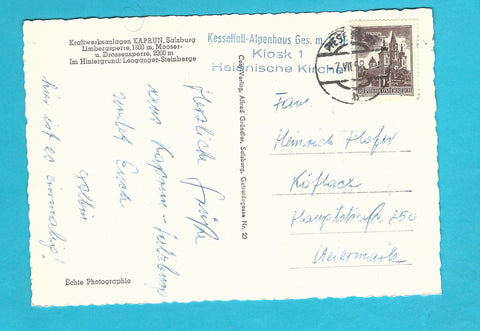 Kraftwerksanlagen KAPRUN, Salzburg
Limbergsperre, 1800 m, Mooser-
u. Drossensperre, 2000 m
Im Hintergrund: Leoganger-Steinberge
Kesselfall-Alpenhaus Ges. m.
Kiosk 1
Heidnische Kirche
Herzliche Grüße
aus Kaprun-Salzburg
sendet Euch
hier ist es einmalig!
Echte Photographie
Cosy-Verlag, Alfred Gründler, Salzburg, Getreidegasse Nr. 22
VII
REPUBLIK ÖSTERREICH
Fam.
Heinrich Hofer
Köflach
Hauptstraße 250
Steiermark